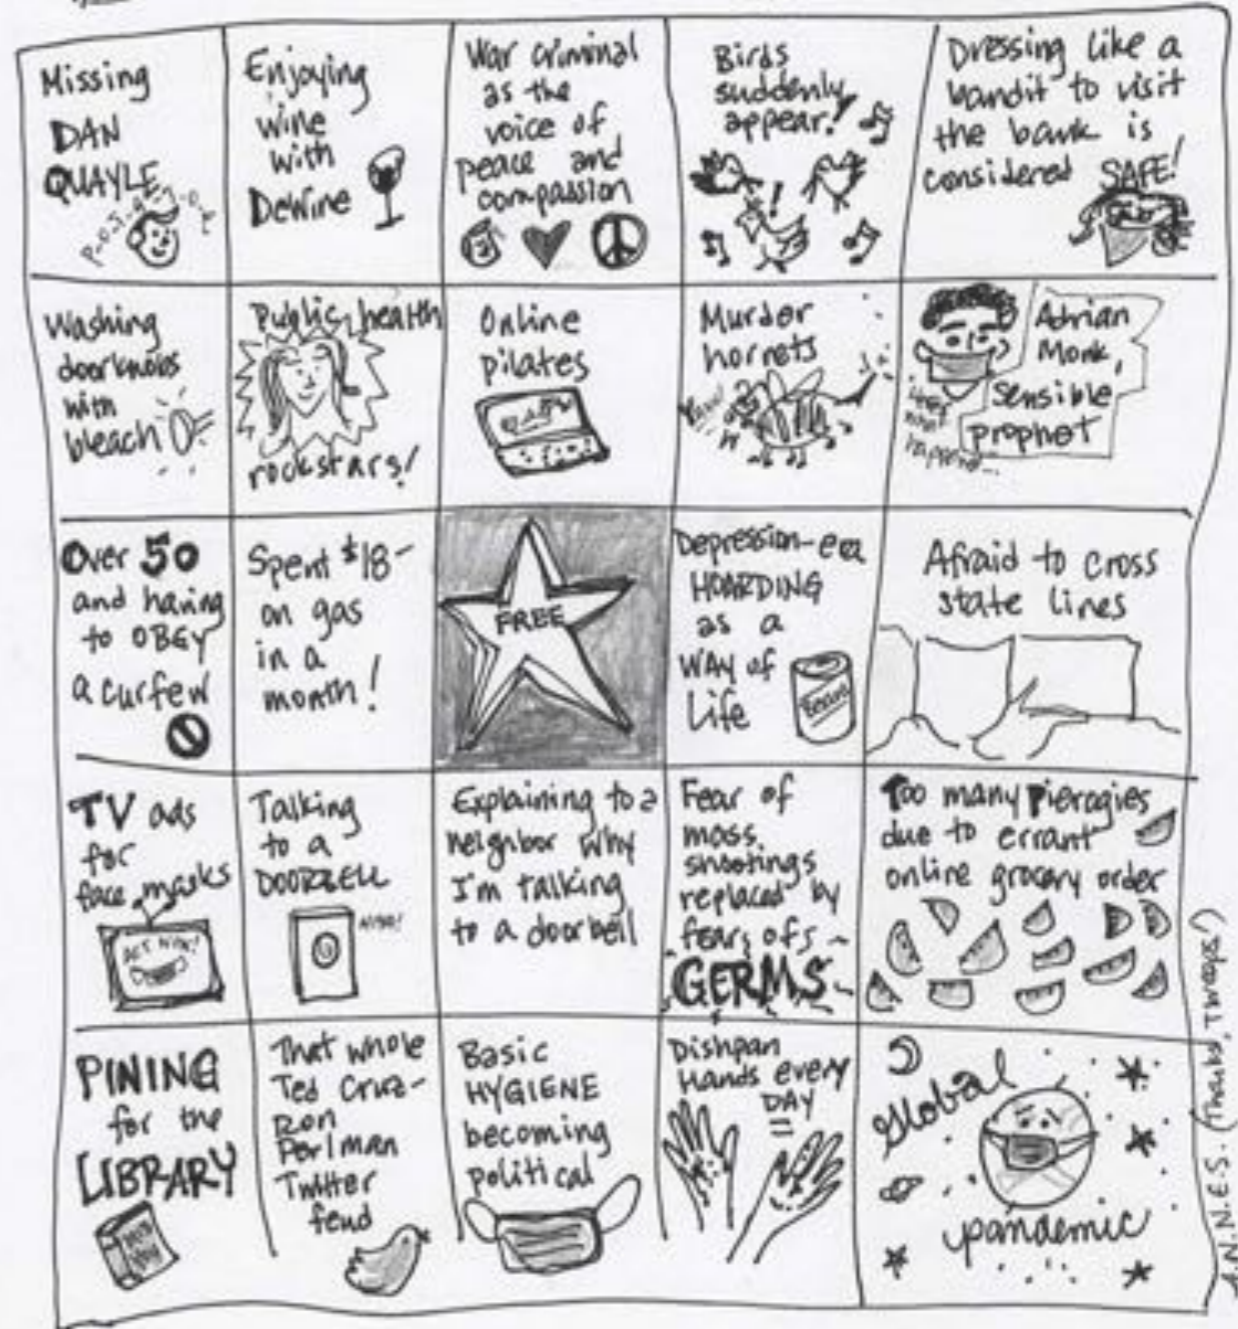 Missing
DAN
QUAYLE
P-O-T-A-T-O-E
Enjoying
wine
with
DeWine
War criminal
as the
voice of
peace and
compassion
Birds
suddenly
appear!
Dressing like a
bandit to visit
the bank is
considered SAFE!
Washing
doorknobs
with
bleach
Public health
rockstars!
Online
pilates
Murder
hornets
Adrian
Monk,
Sensible
prophet
what
happened...
Over 50
and having
to OBEY
a curfew
Spent $18-
on gas
in a
month!
FREE
Depression-era
HOARDING
as a
WAY of
Life
Beans
Afraid to cross
state lines
TV ads
for
face masks
ACT NOW!
Talking
to a
DOORBELL
Explaining to a
neighbor why
I'm talking
to a doorbell
Fear of
mass
shootings
replaced by
fears of
GERMS
Too many Pierogies
due to errant
online grocery order
PINING
for the
LIBRARY
That whole
Ted Cruz-
Ron
Perlman
Twitter
feud
Basic
HYGIENE
becoming
political
Dishpan
Hands every
DAY
Global
pandemic
A.N.N.E.S. (Thanks, Thraps!)